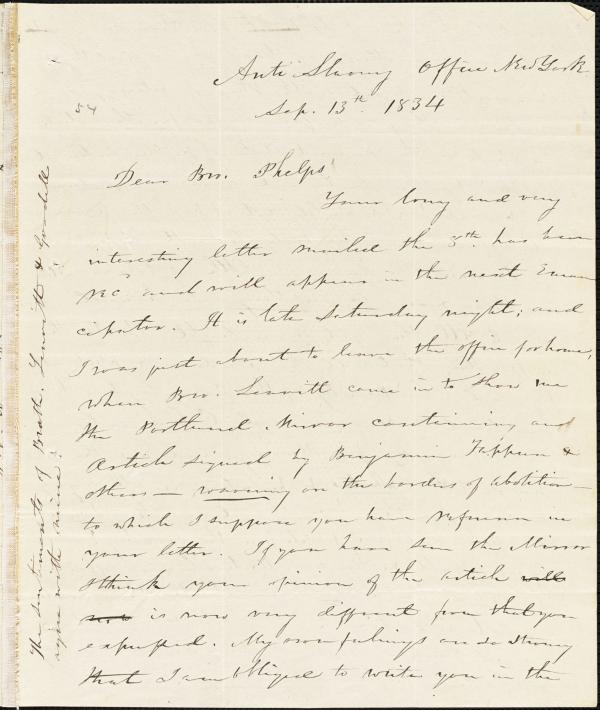 Anti Slavery Office New York
Sep. 13th. 1834
54
Dear Bro. Phelps
Your long and very
interesting letter mailed the 5th. has been
rec'd and will appear in the next Eman
cipator. It is late Saturday night; and
I was just about to leave the office for home,
when Bro. Leavitt came in to show me
the Portland Mirror containing an
Article signed by Benjamin Tappan &
others — roaring on the borders of abolition —
to which I suppose you have reference in
your letter. If you have seen the Mirror
I think your opinion of the article will
now is now very different from that you
expressed. My own feelings are so strong
that I am obliged to write you in the
The sentiments of Breth. Leavitt & Goodell
agree with mine.